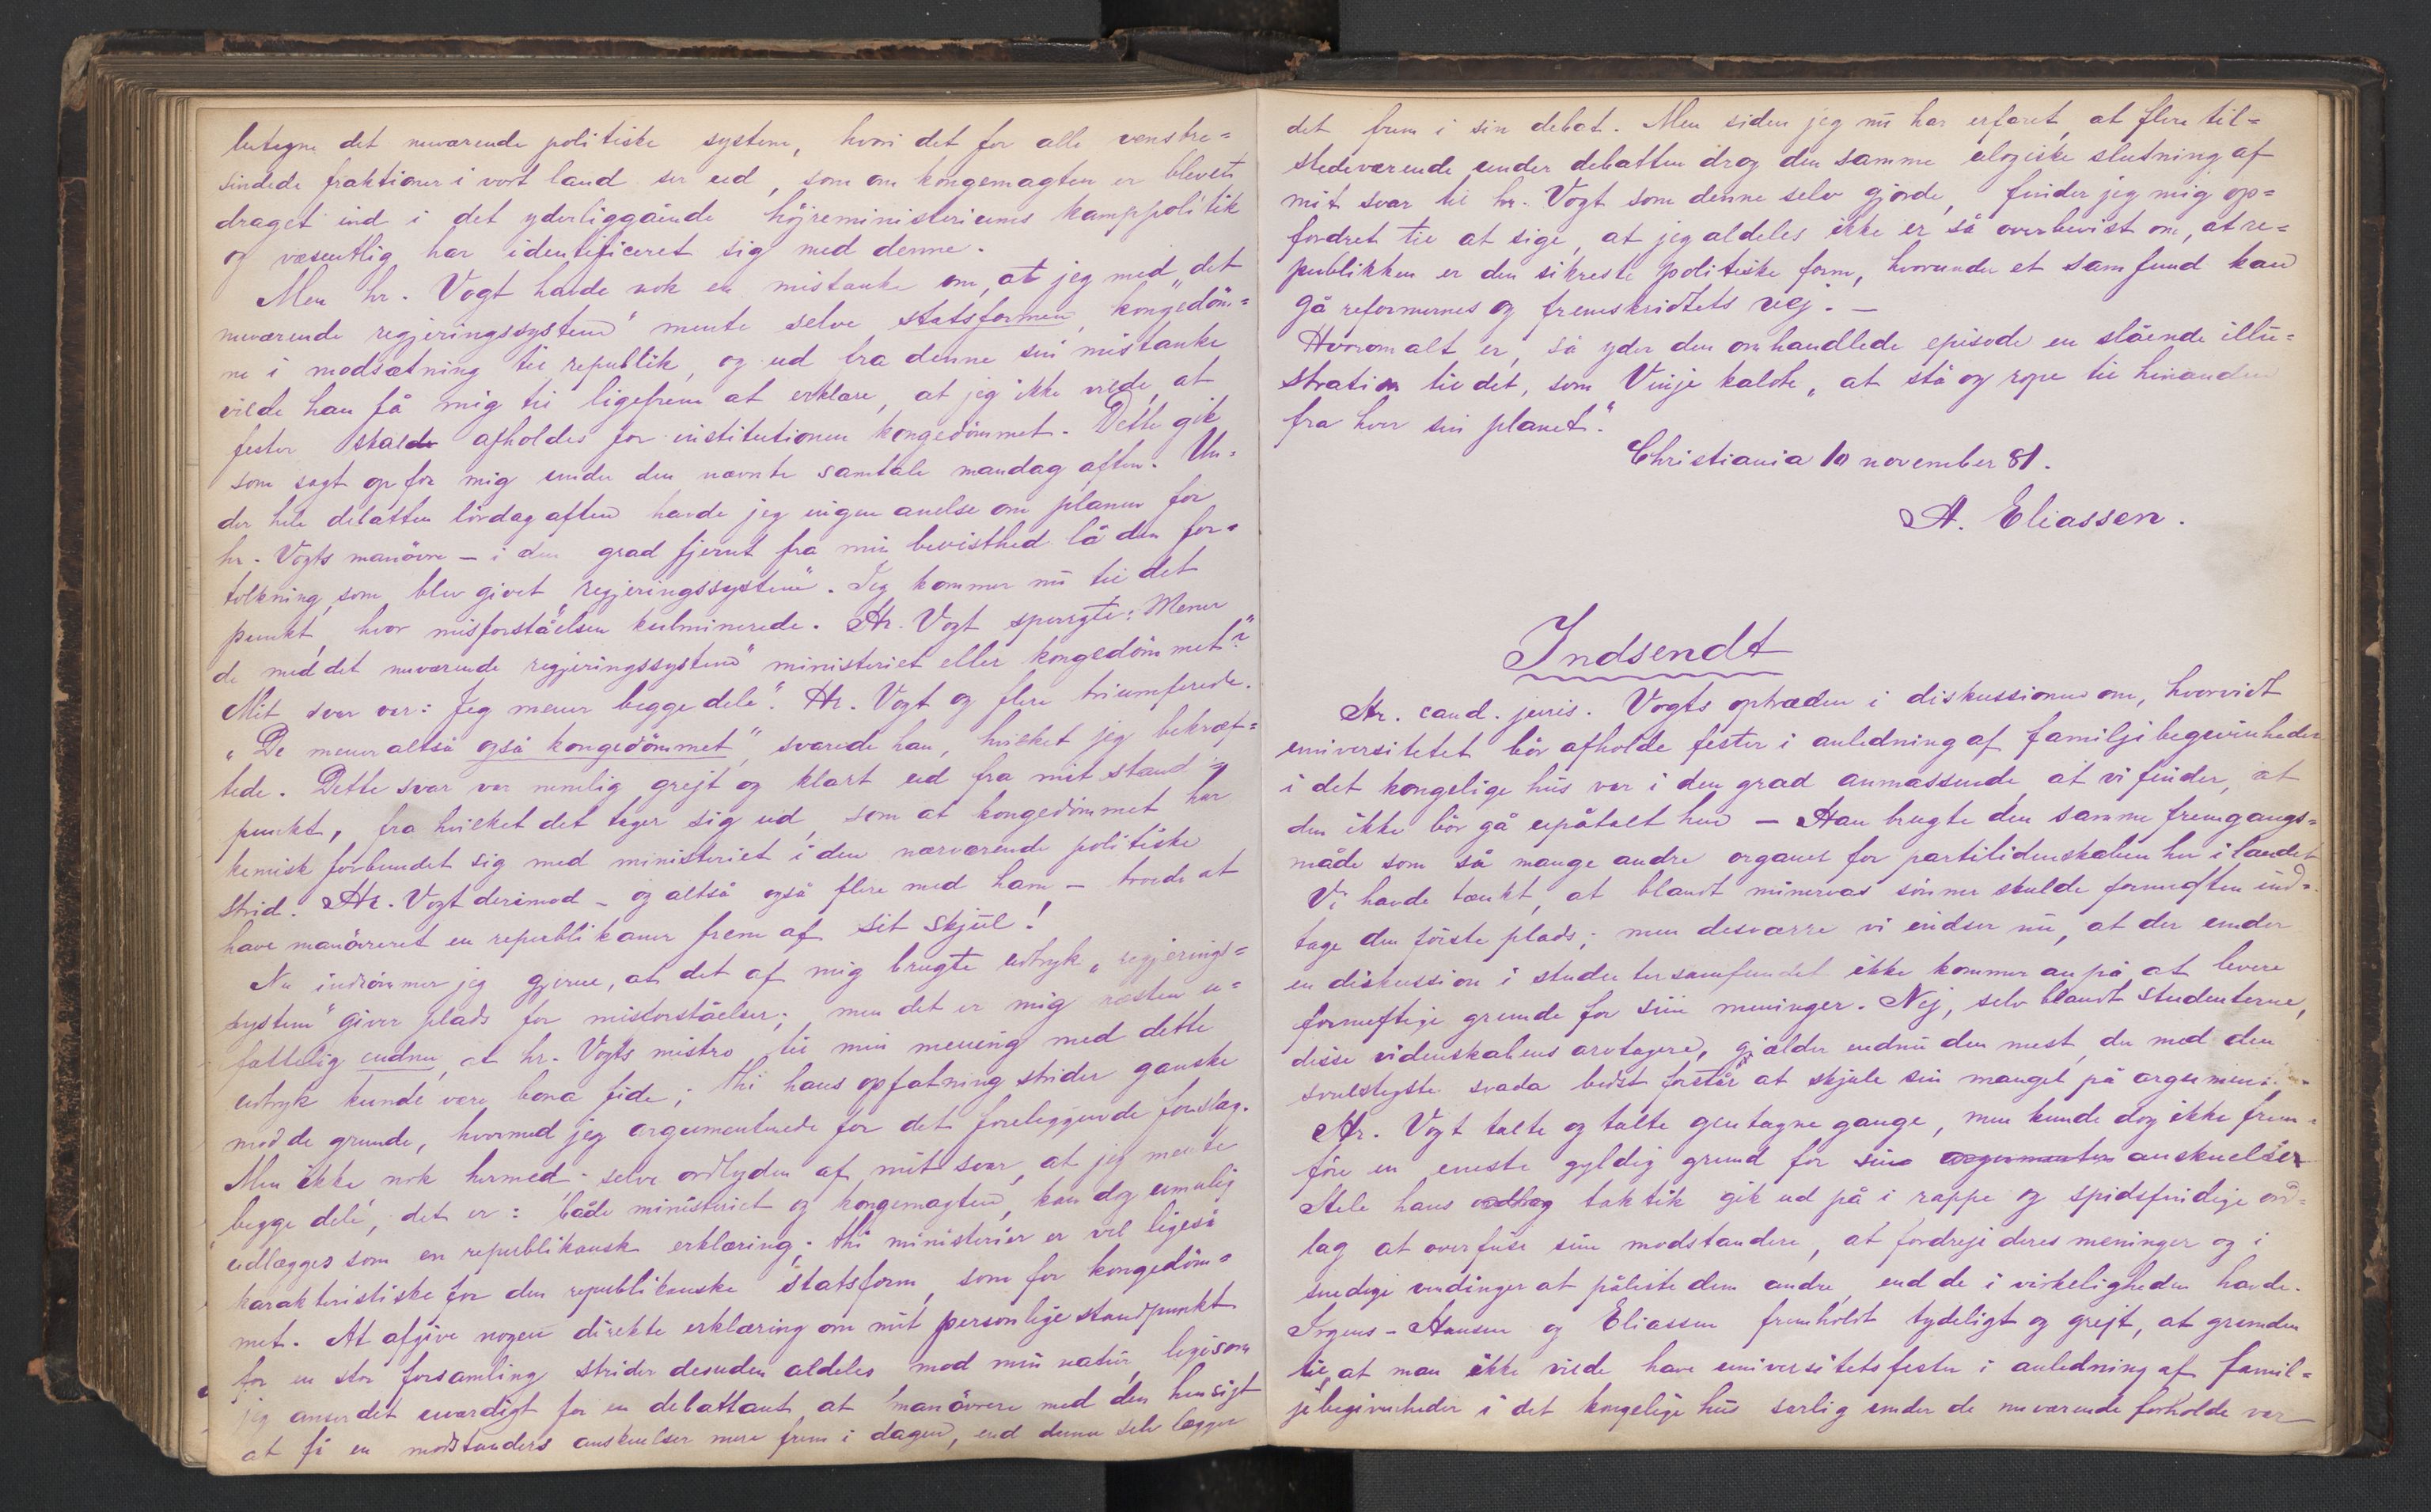 betegne det nuværende politiske system, hvori det for alle venstre=
sindede fraktioner i vort land ser ud, som om kongemagten er blevet
draget ind i det yderliggående höjreministeriums kamppolitik
og væsentlig har identificeret sig med denne.
Men hr. Vogt havde nok en mistanke om, at jeg med „det
nuværende regjeringssystem“ mente selve statsformen, kongedöm=
me i modsætning til republik, og ud fra denne sin mistanke
vilde han få mig til ligefrem at erklære, at jeg ikke vilde, at
fester skulde afholdes for institutionen kongedömmet. Dette gik
som sagt op for mig under den nævnte samtale mandag aften. Un=
der hele debatten lördag aften havde jeg ingen anelse om planen for
hr. Vogts manövre – i den grad fjernt fra min bevisthed lå den for=
tolkning, som blev givet „regjeringssystem“. Jeg kommer nu til det
punkt, hvor misforståelsen kulminerede. Hr. Vogt spurgte: Mener
de med „det nuværende regjeringssystem“ ministeriet eller kongedömmet“?
Mit svar var: Jeg mener begge dele“. Hr. Vogt og flere triumferede.
„De mener altså også kongedömmet“, svarede han, hvilket jeg bekræf=
tede. Dette svar var nemlig grejt og klart ud fra mit stand=
punkt, fra hvilket det tager sig ud, som at kongedömmet har
kemisk forbundet sig med ministeriet i den nærværende politiske
strid. Hr. Vogt derimod – og altså også flere med ham – troede at
have manövreret en republikaner frem af sit skjul!
Nu indrömmer jeg gjerne, at det af mig brugte udtryk „regjerings=
system“ giver plads for misforståelser; men det er mig næsten u=
fattelig endnu, at hr. Vogts mistro til min mening med dette
udtryk kunde være bona fide; thi hans opfatning strider ganske
mod de grunde, hvormed jeg argumenterede for det foreliggende forslag.
Men ikke nok hermed; selve ordlyden af mit svar, at jeg mente
begge dele, det er: både ministeriet og kongemagten, kan dog umulig
udlægges som en republikansk erklæring; thi ministerier er vel ligeså
karakteristiske for den republikanske statsform, som for kongedöm=
met. At afgive nogen direkte erklæring om mit personlige standpunkt
for en stor forsamling strider desuden aldeles mod min natur, ligesom
jeg anser det uværdigt for en debattant at manövrere med den hensigt
at få en modstanders anskuelser mere frem i dagen, end denne selv lægger
det frem i sin debat. Men siden jeg nu har erfaret, at flere til=
stedeværende under debatten drog den samme ulogiske slutning af
mit svar til hr. Vogt som denne selv gjorde, finder jeg mig op=
fordret til at sige, at jeg aldeles ikke er så overbevist om, at re=
publikken er den sikreste politiske form, hvorunder et samfund kan
gå reformernes og fremskridtets vej. –
Hvorom alt er, så yder den omhandlede episode en slående illu=
stration til det, som Vinje kaldte „at stå og rope til hinanden
fra hver sin planet“.
Christiania 10 november 81.
A. Eliassen.
Indsendt
Hr. cand. juris. Vogts optræden i diskussionen om, hvorvidt
universitetet bör afholde fester i anledning af familjebegivenheder
i det kongelige hus var i den grad anmassende, at vi finder, at
den ikke bör gå upåtalt hen – Han brugte den samme fremgangs=
måde som så mange andre organer for partilidenskaben her i landet
Vi havde tænkt, at blandt minervas sönner skulde fornuften ind=
tage den förste plads; men desværre vi indser nu, at der under
en diskussion i studentersamfundet ikke kommer an på, at levere
fornuftige grunde for sine meninger. Nej, selv blandt studenterne,
disse videnskabens arvtagere, gjælder endnu den mest, der med den
svulstigste svada bedst forstår at skjule sin mangel på
Hr. Vogt talte og talte gentagne gange, men kunde dog ikke frem=
före en eneste gyldig grund for sine argumenter anskuelser
Hele hans taktik gik ud på i rappe og spidsfindige ord=
lag at overfuse sine modstandere, at fordreje deres meninger og i
snedige vendinger at pådutte dem andre, end de i virkeligheden havde.
Irgens-Hansen og Eliassen fremholdt tydeligt og grejt, at grunden
til, at man ikke vilde have universitetsfester i anledning af famil=
jebegivenheder i det kongelige hus særlig under de nuværende forholde var